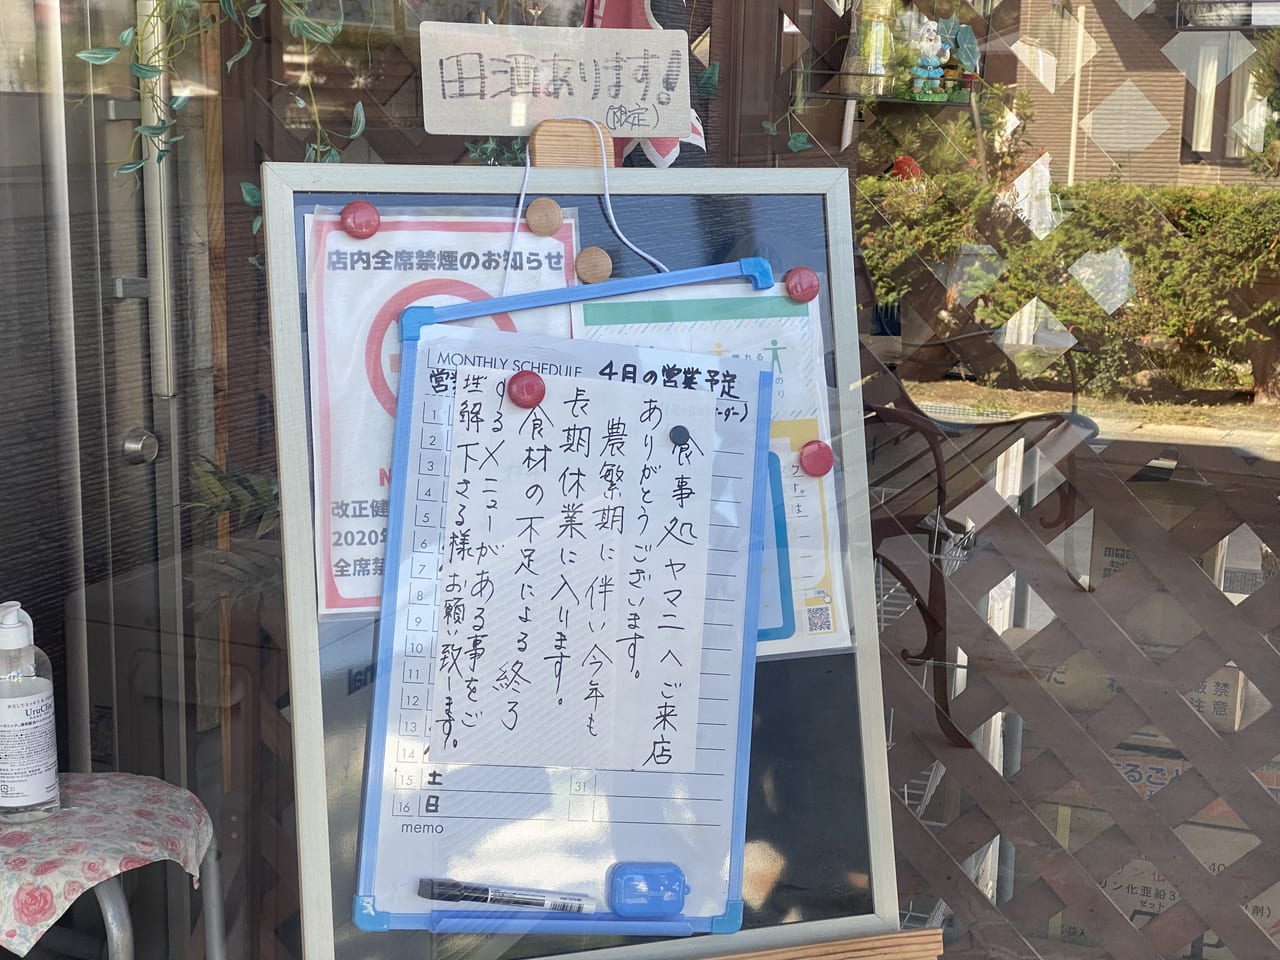 田酒あります!
(限定)
店内全席禁煙のお知らせ
改正健
2020年
全席禁
MONTHLY SCHEDULE
4月の営業予定
営業
食事処ヤマニへご来店
ありがとうございます。
農繁期に伴い今年も
長期休業に入ります。
食材の不足による終了
するメニューがある事をご
理解下さる様お願い致します。
1
2
3
4
5
6
7
8
9
10
11
12
13
14
15 土
16 日
31
memo
UruClin
厳禁
注意